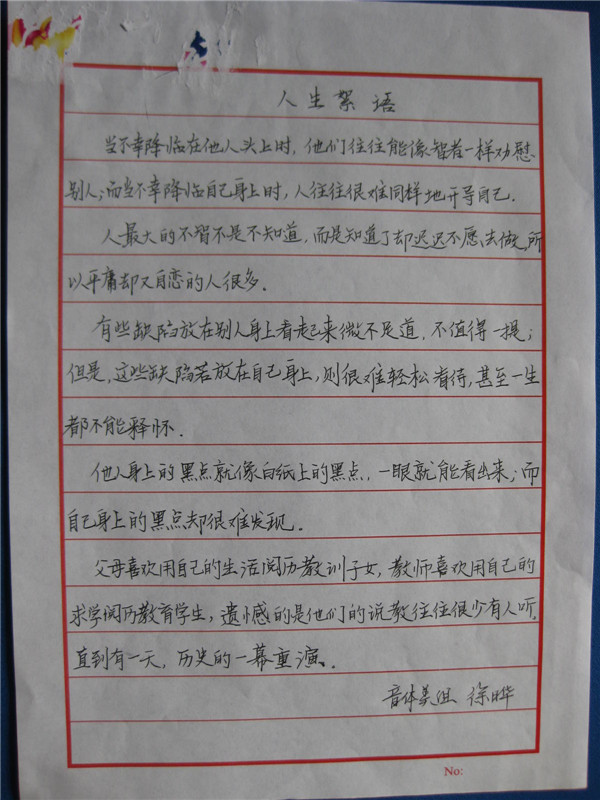 人生絮语
当不幸降临在他人头上时，他们往往能像智者一样劝慰
别人；而当不幸降临自己身上时，人往往很难同样地开导自己．
人最大的不智不是不知道，而是知道了却迟迟不愿去做，所
以平庸却又自恋的人很多．
有些缺陷放在别人身上看起来微不足道，不值得一提；
但是，这些缺陷若放在自己身上，则很难轻松看待，甚至一生
都不能释怀．
他人身上的黑点就像白纸上的黑点，一眼就能看出来；而
自己身上的黑点却很难发现．
父母喜欢用自己的生活阅历教训子女，教师喜欢用自己的
求学阅历教育学生，遗憾的是他们的说教往往很少有人听，
直到有一天，历史的一幕重演．
音体美组 徐晔
No: